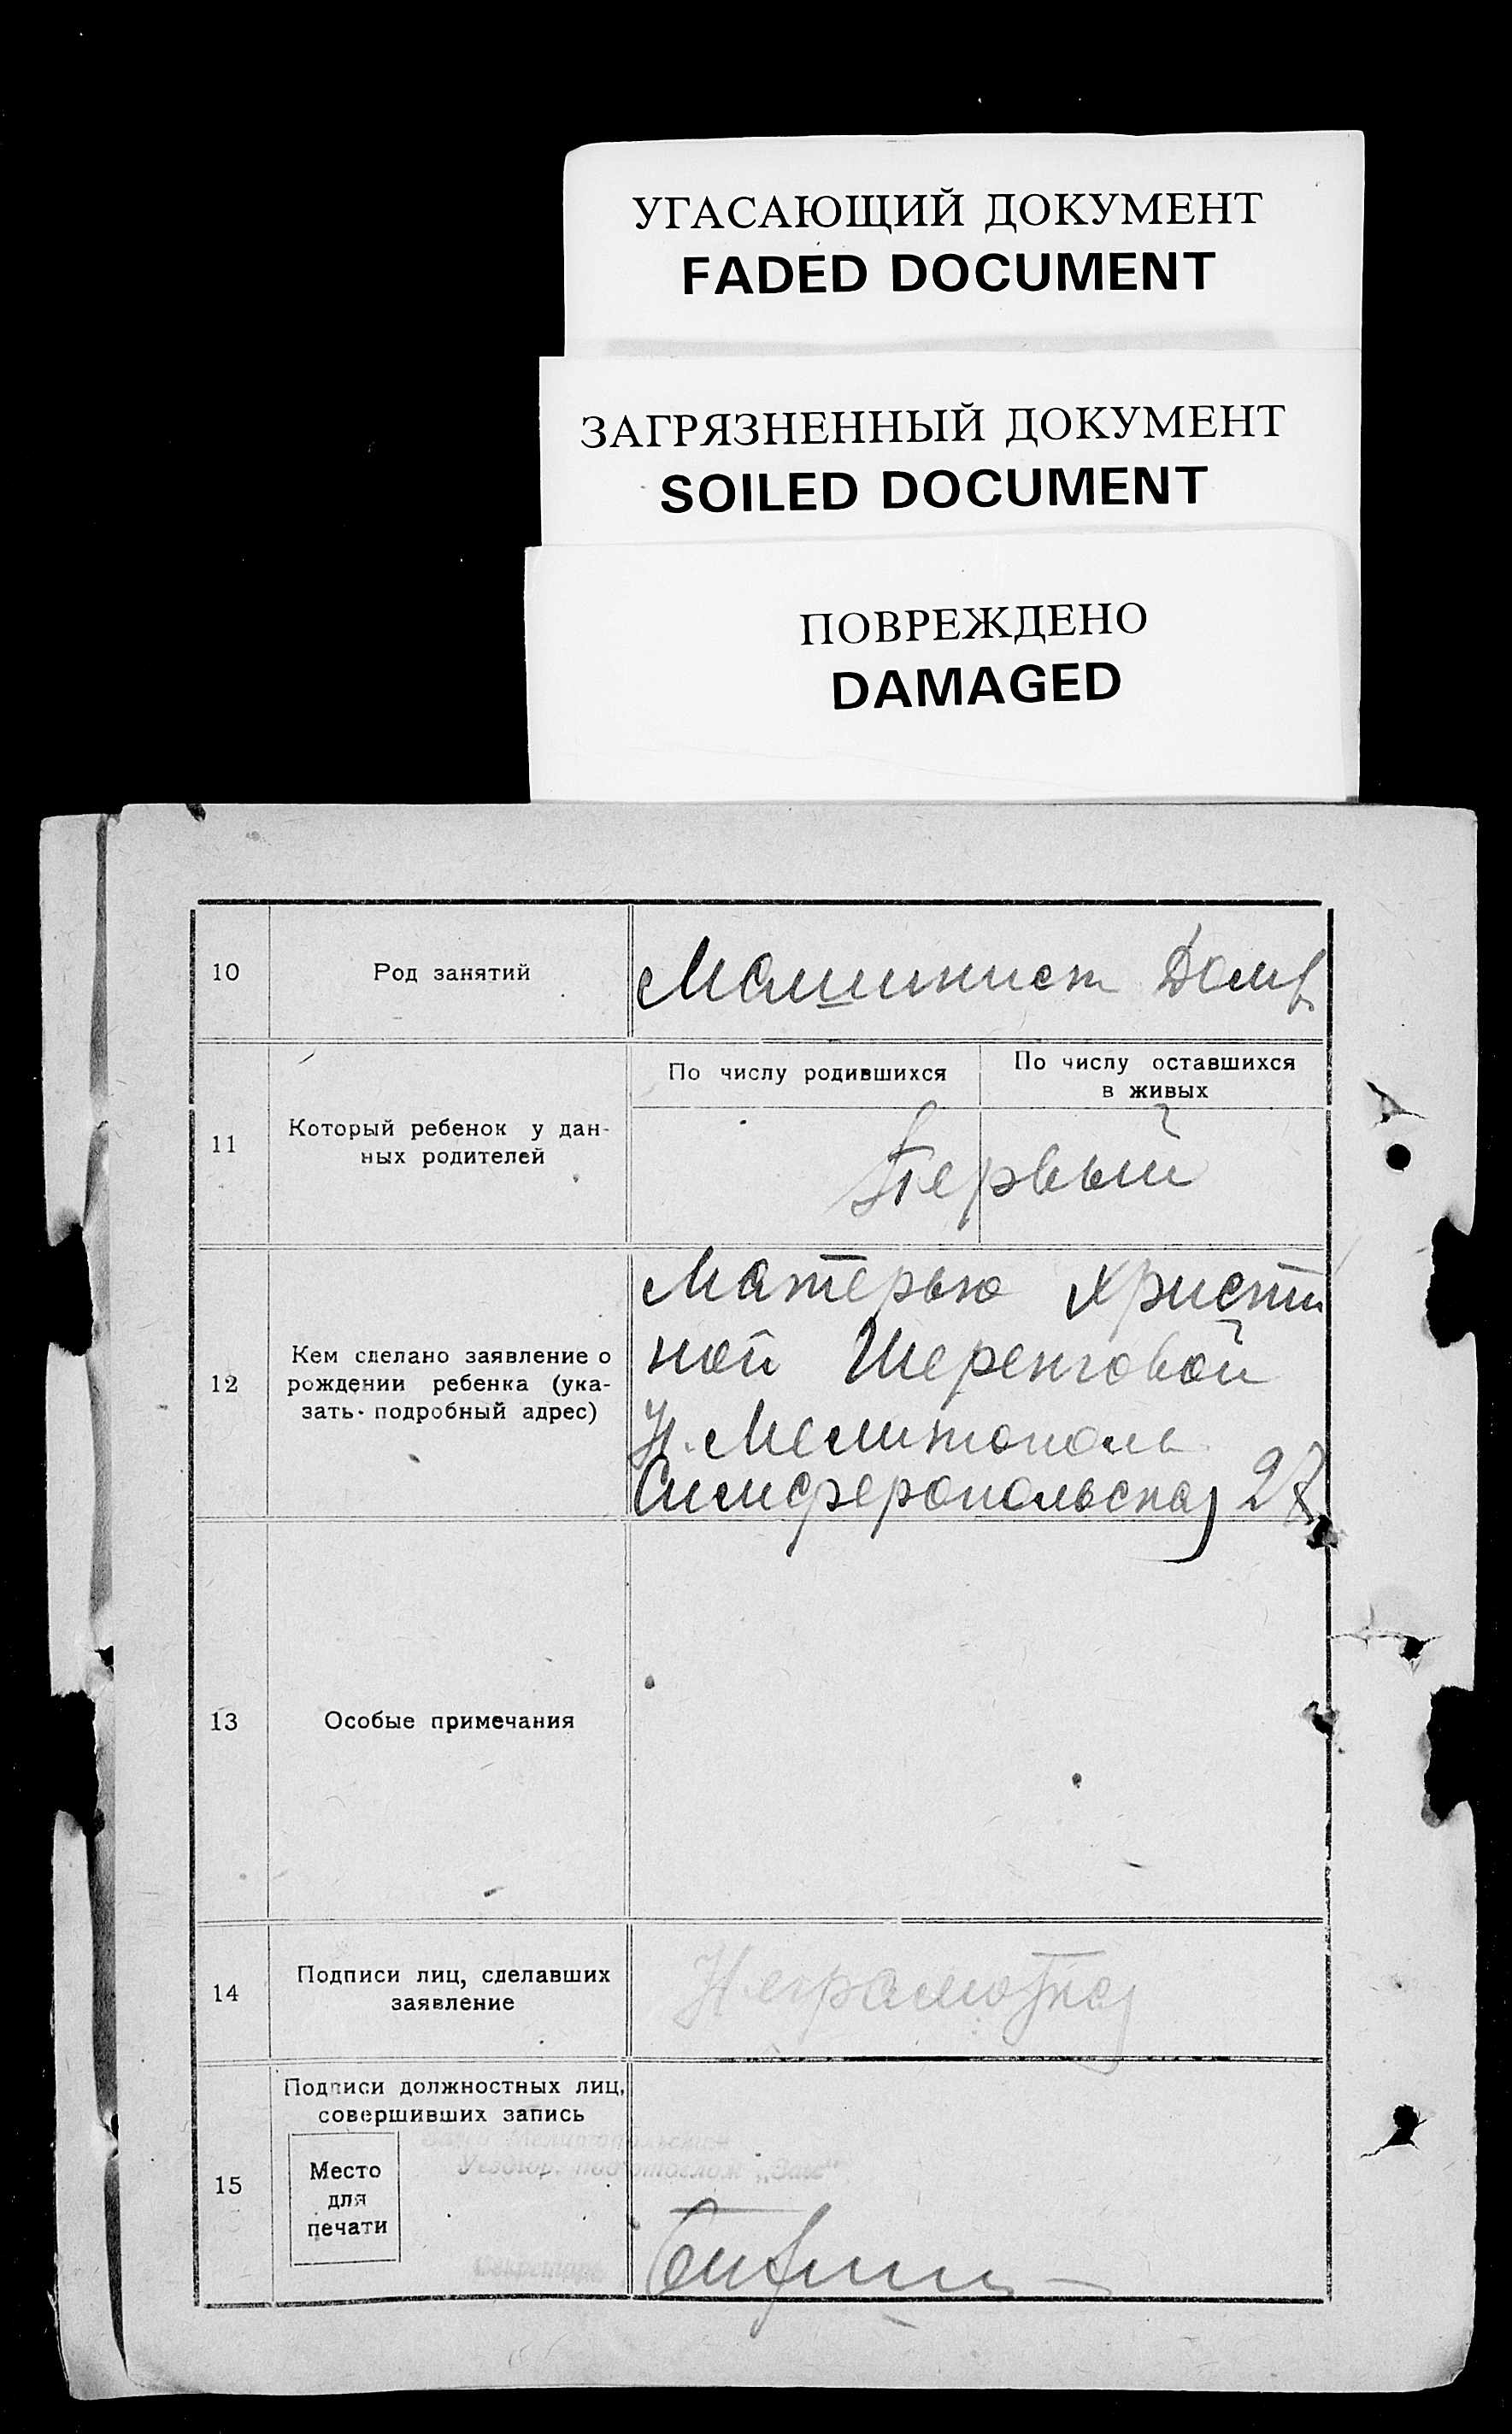 УГАСАЮЩИЙ ДОКУМЕНТ
FADED DOCUMENT
ЗАГРЯЗНЕННЫЙ ДОКУМЕНТ
SOILED DOCUMENT
ПОВРЕЖДЕНО
DAMAGED
10 Род занятий Машинист
11 Который ребенок у дан-
ных родителей
По числу родившихся
По числу оставшихся
в живых
Первый
12 Кем сделано заявление о
рождении ребенка (ука-
зать подробный адрес)
Матерью Христи
ной Шеренговой
Н. Мелитополь
Симферопольская 27
13 Особые примечания
14 Подписи лиц, сделавших
заявление
Неграмотная
15 Подписи должностных лиц,
совершивших запись
Место
для
печати
Секретарь